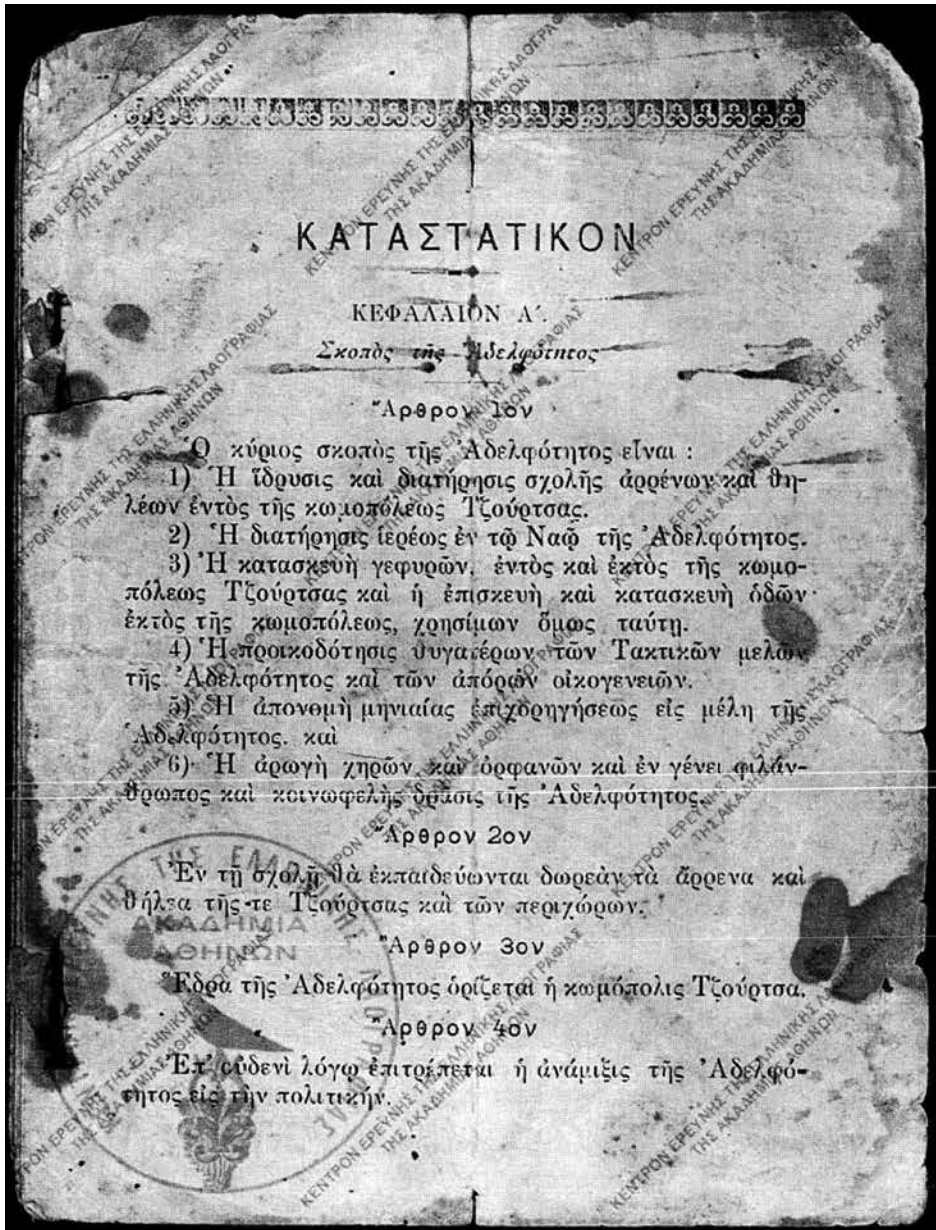 ΚΑΤΑΣΤΑΤΙΚΟΝ
ΚΕΦΑΛΑΙΟΝ Α΄.
Σκοπὸς τῆς Ἀδελφότητος
Ἄρθρον 1ον
Ὁ κύριος σκοπὸς τῆς Ἀδελφότητος εἶναι :
1) Ἡ ἵδρυσις καὶ διατήρησις σχολῆς ἀρρένων καὶ θη-
λέων ἐντὸς τῆς κωμοπόλεως Τζούρτσας.
2) Ἡ διατήρησις ἱερέως ἐν τῷ Ναῷ τῆς Ἀδελφότητος.
3) Ἡ κατασκευὴ γεφυρῶν, ἐντὸς καὶ ἐκτὸς τῆς κωμο-
πόλεως Τζούρτσας καὶ ἡ ἐπισκευὴ καὶ κατασκευὴ ὁδῶν
ἐκτὸς τῆς κωμοπόλεως, χρησίμων ὅμως ταύτῃ.
4) Ἡ προικοδότησις θυγατέρων τῶν Τακτικῶν μελῶν
τῆς Ἀδελφότητος καὶ τῶν ἀπόρων οἰκογενειῶν.
5) Ἡ ἀπονομὴ μηνιαίας ἐπιχορηγήσεως εἰς μέλη τῆς
Ἀδελφότητος. καὶ
6) Ἡ ἀρωγὴ χηρῶν καὶ ὀρφανῶν καὶ ἐν γένει φιλάν-
θρωπος καὶ κοινωφελὴς δρᾶσις τῆς Ἀδελφότητος.
Ἄρθρον 2ον
Ἐν τῇ σχολῇ θὰ ἐκπαιδεύωνται δωρεὰν τὰ ἄρρενα καὶ
θήλεα τῆς τε Τζούρτσας καὶ τῶν περιχώρων.
Ἄρθρον 3ον
Ἕδρα τῆς Ἀδελφότητος ὁρίζεται ἡ κωμόπολις Τζούρτσα.
Ἄρθρον 4ον
Ἐπ' οὐδενὶ λόγῳ ἐπιτρέπεται ἡ ἀνάμιξις τῆς Ἀδελφό-
τητος εἰς τὴν πολιτικήν.
ΑΚΑΔΗΜΙΑ
ΑΘΗΝΩΝ
ΚΕΝΤΡΟΝ ΕΡΕΥΝΗΣ ΤΗΣ ΕΛΛΗΝΙΚΗΣ ΛΑΟΓΡΑΦΙΑΣ
ΤΗΣ ΑΚΑΔΗΜΙΑΣ ΑΘΗΝΩΝ